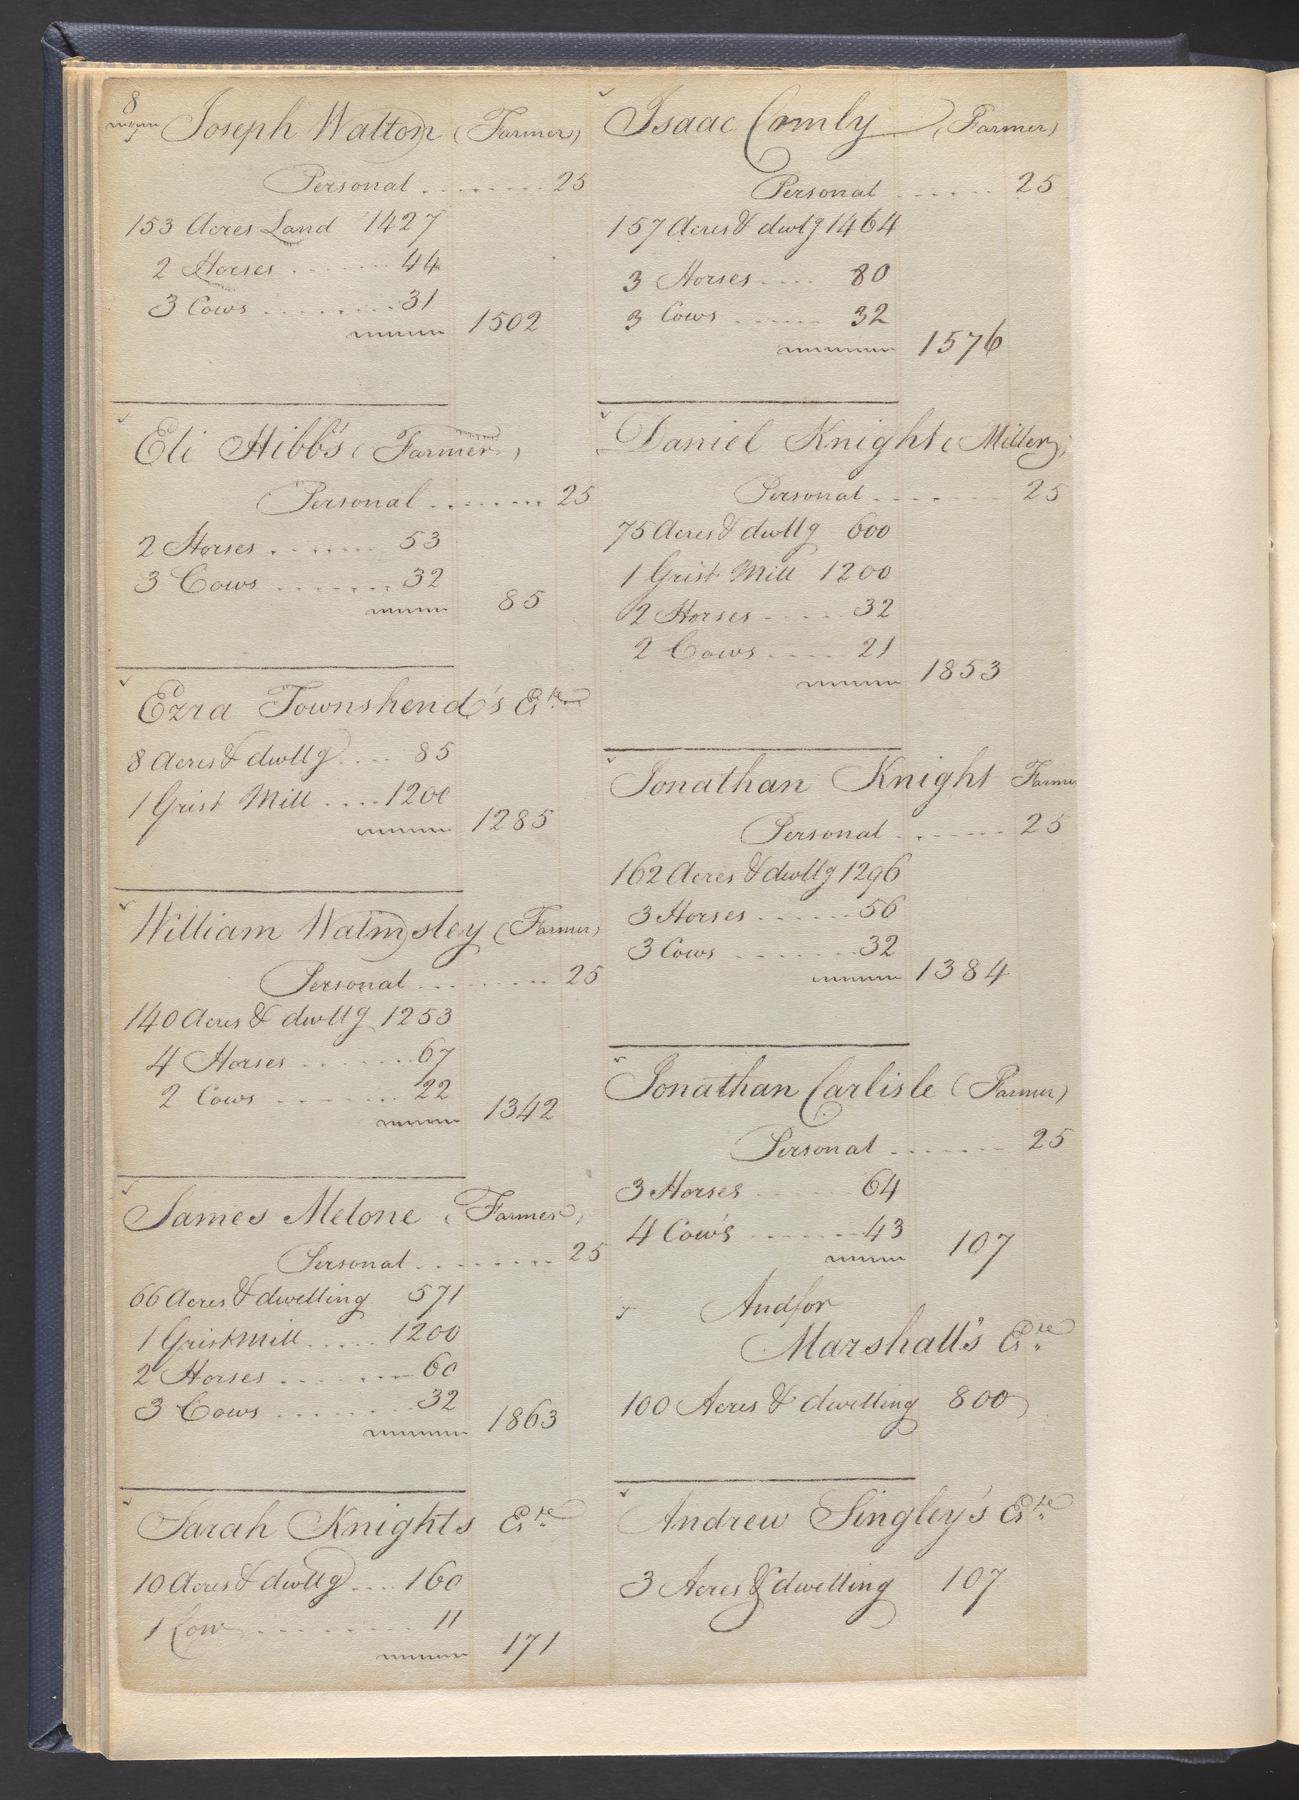 8
Joseph Walton (Farmer)
Personal ........ 25
153 Acres Land 1427
2 Horses ....... 44
3 Cows ......... 31
1502
Eli Hibb's (Farmer)
Personal ........ 25
2 Horses ....... 53
3 Cows ........ 32
85
Ezra Townshend's Este
8 Acres & dwllg .... 85
1 Grist Mill .... 1200
1285
William Walmsley (Farmer)
Personal ......... 25
140 Acres & dwllg 1253
4 Horses ....... 67
2 Cows ........ 22
1342
James Melone (Farmer)
Personal ......... 25
66 Acres & dwelling 571
1 Grist Mill ..... 1200
2 Horses ....... 60
3 Cows ......... 32
1863
Sarah Knights Este
10 Acres & dwllg .... 160
1 Cow ......... 11
171
Isaac Comly (Farmer)
Personal ...... 25
157 Acres & dwlg 1464
3 Horses .... 80
3 Cows ...... 32
1576
Daniel Knight (Miller)
Personal ....... 25
75 Acres & dwllg 600
1 Grist Mill 1200
2 Horses ..... 32
2 Cows ..... 21
1853
Jonathan Knight Farme
Personal ....... 25
162 Acres & dwllg 1296
3 Horses ...... 56
3 Cows ........ 32
1384
Jonathan Carlisle (Farmer)
Personal ....... 25
3 Horses ...... 64
4 Cow's ....... 43
107
And for
Marshall's Este
100 Acres & dwelling 800
Andrew Singley's Este
3 Acres & dwelling 107